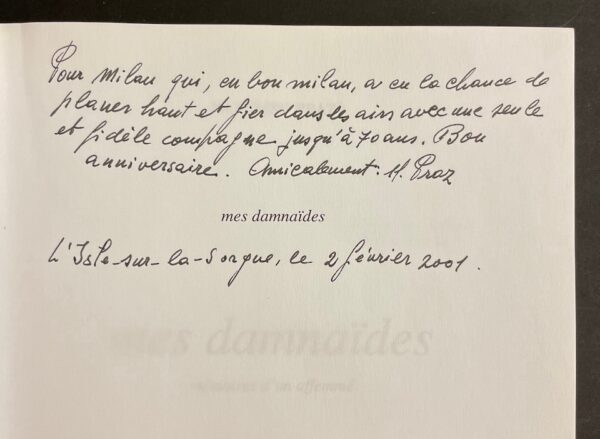 Pour Milan qui, en bon milan, a eu la chance de
planer haut et fier dans les airs avec une seule
et fidèle compagne jusqu'à 70 ans. Bon
anniversaire. Amicalement. H. Praz
mes damnaïdes
L'Isle-sur-la-Sorgue, le 2 février 2001.
mes damnaïdes
d'un affemmé